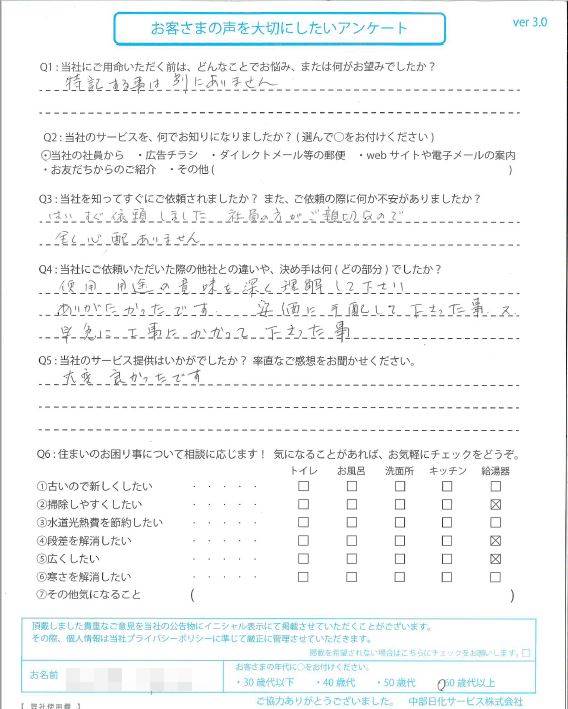 お客さまの声を大切にしたいアンケート
ver 3.0
Q1：当社にご用命いただく前は、どんなことでお悩み、または何がお望みでしたか？
特記する事は 別にありません
Q2：当社のサービスを、何でお知りになりましたか？（選んで○をお付けください）
・当社の社員から ・広告チラシ ・ダイレクトメール等の郵便 ・webサイトや電子メールの案内
・お友だちからのご紹介 ・その他（ ）
Q3：当社を知ってすぐにご依頼されましたか？ また、ご依頼の際に何か不安がありましたか？
はい すぐ依頼しました 社員の方がご親切なので
全く心配ありません
Q4：当社にご依頼いただいた際の他社との違いや、決め手は何（どの部分）でしたか？
使用 用途の意味を深く理解して下さり
ありがたかったです 安価に手配して下さった事 又
早急に工事にかかって下さった事
Q5：当社のサービス提供はいかがでしたか？ 率直なご感想をお聞かせください。
大変 良かったです
Q6：住まいのお困り事について相談に応じます！ 気になることがあれば、お気軽にチェックをどうぞ。
トイレ お風呂 洗面所 キッチン 給湯器
①古いので新しくしたい ・・・・・ □ □ □ □ □
②掃除しやすくしたい ・・・・・ □ □ □ □ ☒
③水道光熱費を節約したい ・・・・・ □ □ □ □ □
④段差を解消したい ・・・・・ □ □ □ □ ☒
⑤広くしたい ・・・・・ □ □ □ □ ☒
⑥寒さを解消したい ・・・・・ □ □ □ □ □
⑦その他気になること （ ）
頂戴しました貴重なご意見を当社の公告物にイニシャル表示にて掲載させていただくことがございます。
その際、個人情報は当社プライバシーポリシーに準じて厳正に管理させていただきます。
掲載を希望されない場合はこちらにチェックをお願いします。□
お名前
お客さまの年代に○をお付けください。
・30歳代以下 ・40歳代 ・50歳代 ・60歳代以上
ご協力ありがとうございました。 中部日化サービス株式会社